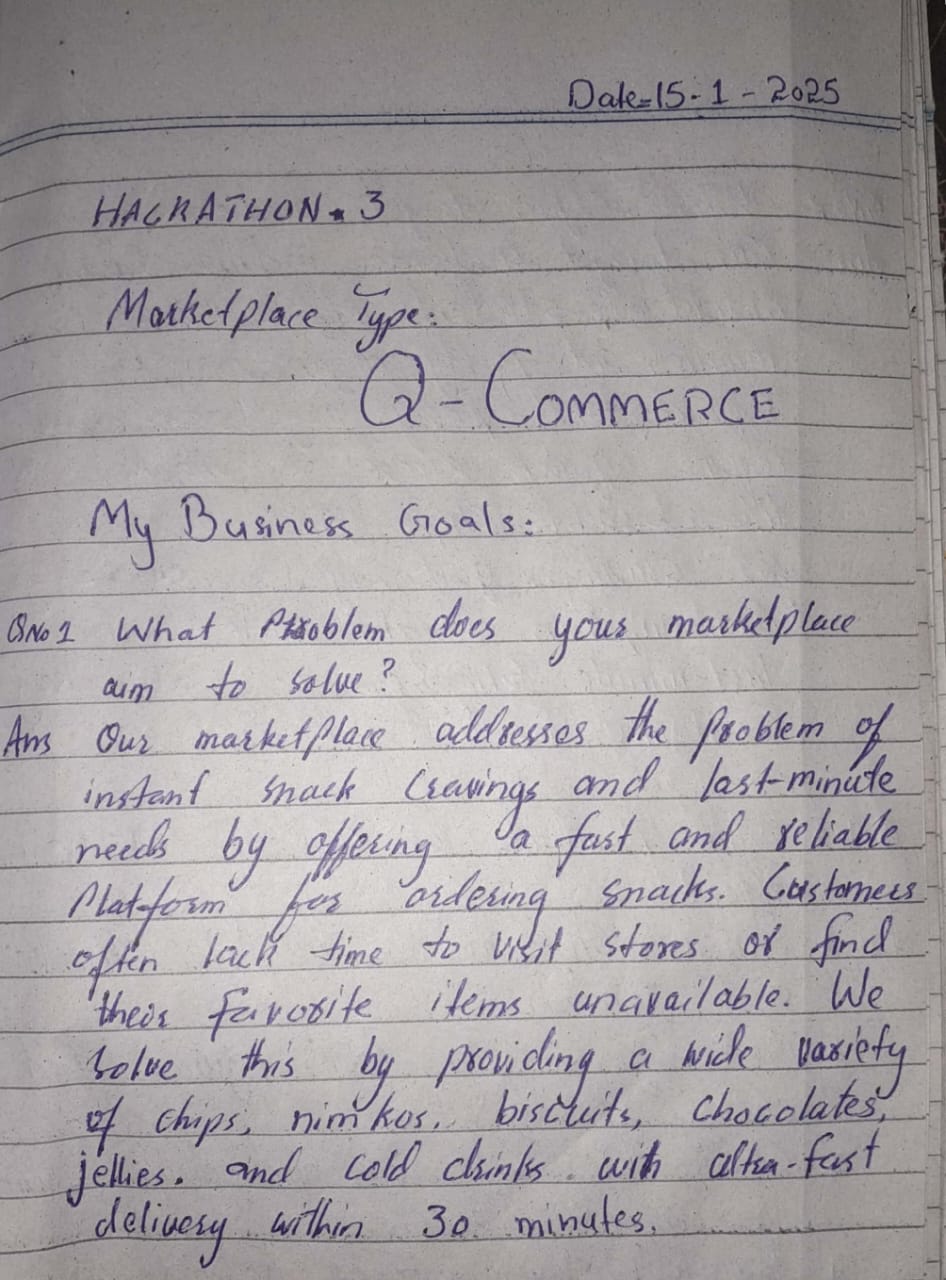 Date=15-1-2025
HACKATHON-3
Marketplace Type:
Q-COMMERCE
My Business Goals:
QNo1 What Problem does your marketplace
aim to solve?
Ans Our marketplace addresses the Problem of
instant snack Cravings and last-minute
needs by offering a fast and reliable
Platform for ordering snacks. Customers
often lack time to visit stores or find
their favorite items unavailable. We
solve this by providing a wide variety
of chips, nimkos, biscuits, chocolates,
jellies. and cold drinks with ultra-fast
delivery within 30 minutes.